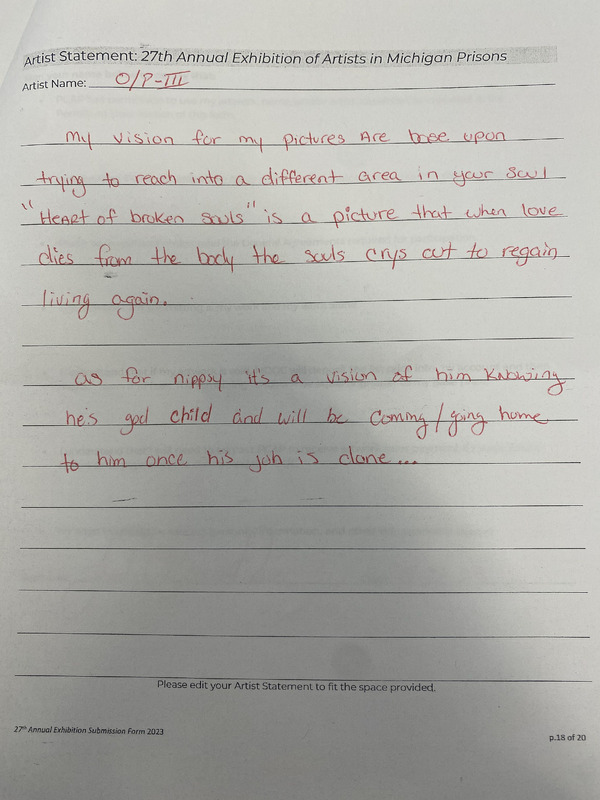 Artist Statement: 27th Annual Exhibition of Artists in Michigan Prisons
Artist Name: O/P-III
My vision for my pictures Are base upon
trying to reach into a different area in your soul
"HEART of broken souls" is a picture that when love
dies from the body the souls crys out to regain
living again.
as for nippsy it's a vision of him Knowing
he's god child and will be comming/going home
to him once his job is done...
Please edit your Artist Statement to fit the space provided.
27th Annual Exhibition Submission Form 2023
p.18 of 20